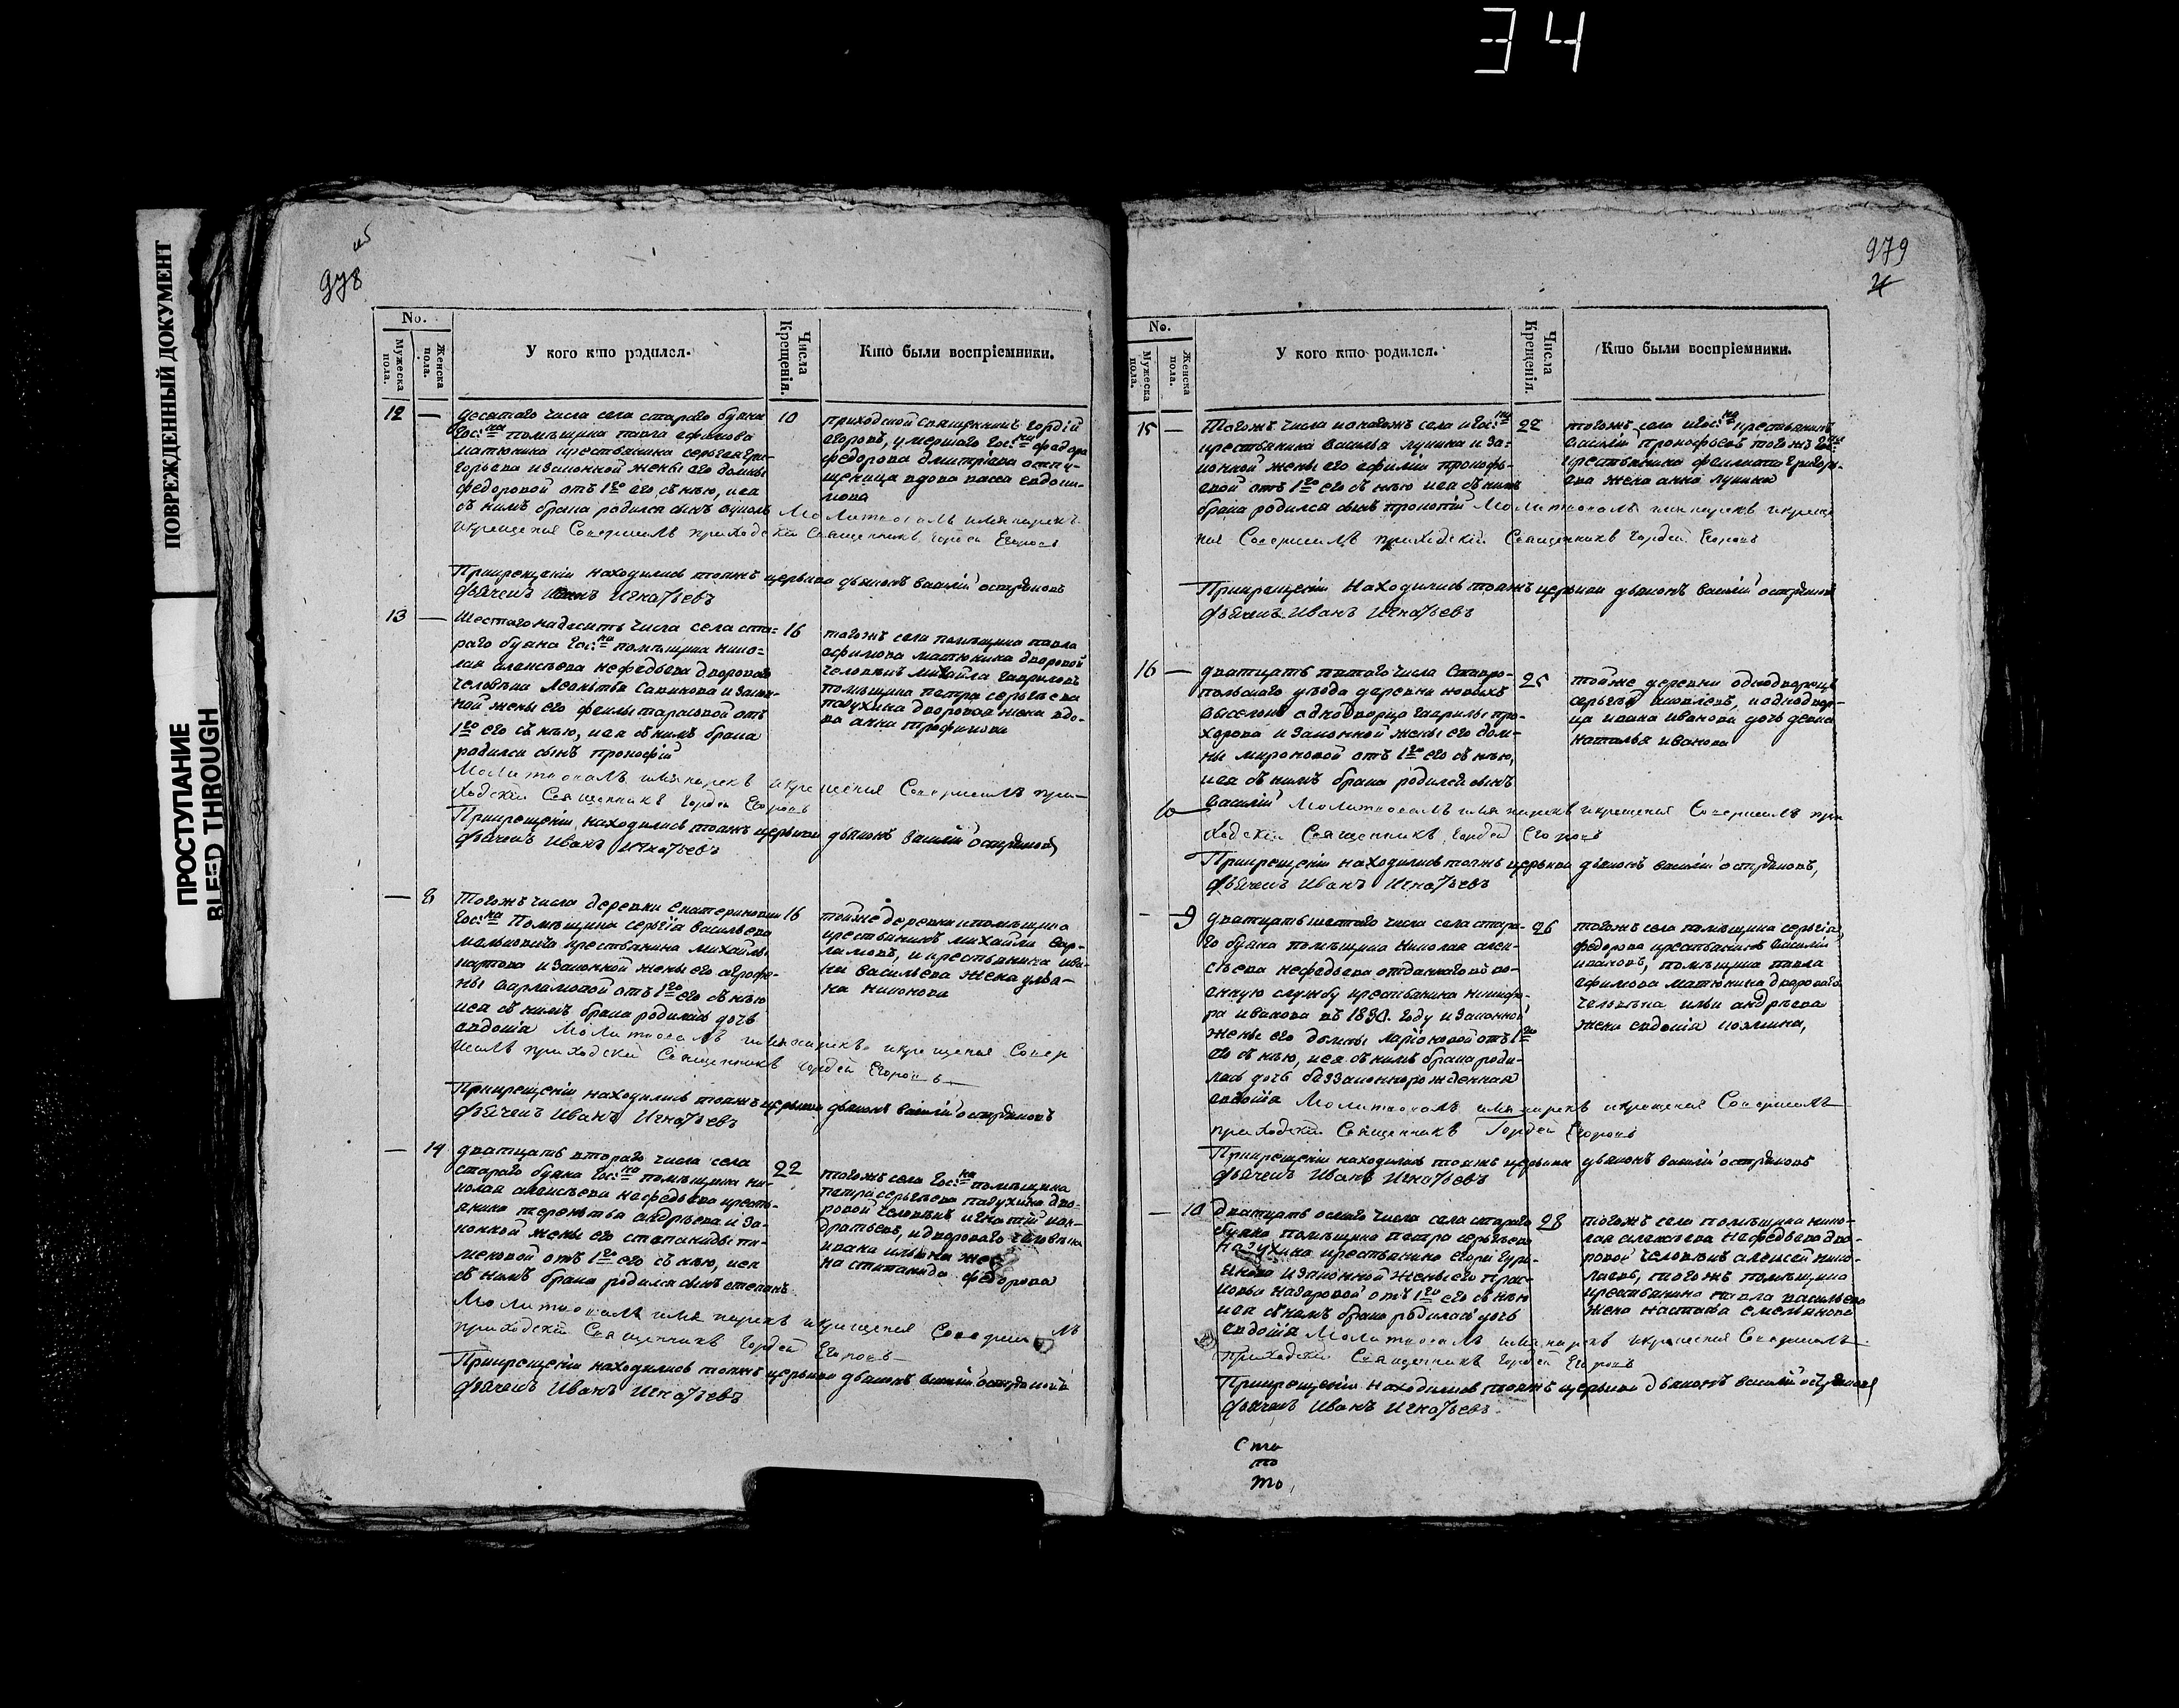 34
ПОВРЕЖДЕННЫЙ ДОКУМЕНТ
ПРОСТУПАНИЕ
BLEED THROUGH
978
No.
Мужеска пола.
Женска пола.
У кого кто родился.
Числа Крещенія.
Кто были воспріемники.
12 —
десятаго числа села стараго буяна
Гос:на помѣщика павла ефимова
матюнина крестьянина сергея гри-
горьева изаконной жены его домны
федоровой отъ 1го его съ нею, иея
съ нимъ брака родился сынъ
Молитвовалъ имя нарекъ
икрещенія Совершилъ приходскій Священникъ Гордей Егоровъ
10
приходской священникъ гордій
егоровъ, умершаго Гос:на федора
федорова дмитріева отпу-
щеница вдова васса евдоки-
мова
Прикрещеніи находились тояжъ церькви дьяконъ василій остряковъ
дьячекъ Иванъ Игнатьевъ
13 —
Шестагонадесять числа села ста-
раго буяна Гос:на помѣщика нико-
лая алексѣева нефедьева двороваго
человѣка Леонтья Савинова изакон-
ной жены его феклы тарасовой отъ
1го его съ нею, иея съ нимъ брака
родился сынъ прокофій
16
тогожъ села помѣщика павла
ефимова матюнина дворовой
человѣкъ михайла гавриловъ
помѣщика петра сергѣева
пазухина дворовая жена вдо-
ва анна трофимова
Молитвовалъ имя нарекъ икрещенія Совершилъ при-
ходскій Священникъ Гордей Егоровъ
Прикрещеніи находились тояжъ церькви дьяконъ василій остряковъ
дьячекъ Иванъ Игнатьевъ
— 8
Тогожъ числа деревни екатериновки
Гос:на Помѣщика сергія васильева
мельковича крестьянина михайлы
карпова изаконной жены его агрофе-
ны варламовой отъ 1го его съ нею
иея съ нимъ брака родилась дочь
евдокія Молитвовалъ имя нарекъ икрещенія Совер
шилъ приходскій Священникъ Гордей Егоровъ
16
тойже деревни ипомѣщика
крестьянинъ михайла вар-
ламовъ, икрестьянина ива-
на васильева жена улья-
на никонова
Прикрещеніи находились тояжъ церькви дьяконъ василій остряковъ
дьячекъ Иванъ Игнатьевъ
— 14
дватцать втораго числа села
стараго буяна Гос:на помѣщика ни-
колая алексѣева нефедьева кресть-
янина терентья андрѣева иза-
конной жены его степаниды пи-
меновой отъ 1го его съ нею, иея
съ нимъ брака родился сынъ степанъ
22
тогожъ села Гос:на помѣщика
петра сергѣева пазухина дво-
ровой человѣкъ игнатій кон-
дратьевъ, идвороваго человѣка
ивана ильина же
на степанида федорова
Молитвовалъ имя нарекъ икрещенія Совершилъ
приходскій Священникъ Гордей Егоровъ
Прикрещеніи находились тояжъ церькви дьяконъ василій остряковъ
дьячекъ Иванъ Игнатьевъ
979
No.
Мужеска пола.
Женска пола.
У кого кто родился.
Числа Крещенія.
Кто были воспріемники.
15 —
Тогожъ числа итогожъ села игос:на
крестьянина василья лукина иза-
конной жены его ефиміи прокофь-
евой отъ 1го его съ нею иея съ нимъ
брака родился сынъ прокопій Молитвовалъ имя нарекъ икреще
нія Совершилъ приходскій Священникъ Гордей Егоровъ
22
тогожъ села игос:на крестьянинъ
василій прокофьевъ тогожъ гос:на
крестьянина филипа григорь-
ева жена анна лукина
Прикрещеніи Находились тояжъ церькви дьяконъ василій остряковъ
дьячекъ Иванъ Игнатьевъ
16 —
дватцать пятаго числа Ставро-
польскаго уѣзда деревни новыхъ
выселокъ однодворца гаврилы про-
хорова изаконной жены его дом-
ны мироновой отъ 1го его съ нею,
иея съ нимъ брака родился сынъ
василій Молитвовалъ имя нарекъ икрещенія Совершилъ при
ходскій Священникъ Гордей Егоровъ
25
тойже деревни однодворецъ
сергѣй яковлевъ, иоднодвор-
ца ивана иванова дочь девка
наталья иванова
Прикрещеніи находились тояжъ церькви дьяконъ василій остряковъ,
дьячекъ Иванъ Игнатьевъ
— 9
дватцать шестаго числа села стара-
го буяна помѣщика николая алек-
сѣева нефедьева отданнаго въ во-
енную службу крестьянина никифо-
ра иванова въ 1830. году изаконной
жены его домны ларіоновой отъ 1го
его съ нею, иея съ нимъ брака роди-
лась дочь беззаконнорожденная
евдокія Молитвовалъ имя нарекъ икрещенія Совершилъ
приходскій Священникъ Гордей Егоровъ
26
тогожъ села помѣщика сергія
федорова крестьянинъ василій
ивановъ, помѣщика павла
ефимова матюнина двороваго
человѣка ильи андрѣева
жена евдокія козмина,
Прикрещеніи находились тояжъ церькви дьяконъ василій остряковъ
дьячекъ Иванъ Игнатьевъ
— 10
дватцать осмаго числа села стараго
буяна помѣщика петра сергѣева
пазухина крестьянина егора гурь-
янова изаконной жены его прас-
ковьи назаровой отъ 1го его съ нею
иея съ нимъ брака родилась дочь
евдокія Молитвовалъ имя нарекъ икрещенія Совершилъ
приходскій Священникъ Гордей Егоровъ
28
тогожъ села помѣщика нико-
лая алексѣева нефедьева дво-
ровой человѣкъ алексей нико-
лаевъ, тогожъ помѣщика
крестьянина павла васильева
жена настасья емельянова
Прикрещеніи находились тояжъ церькви дьяконъ василій остряковъ
дьячекъ Иванъ Игнатьевъ